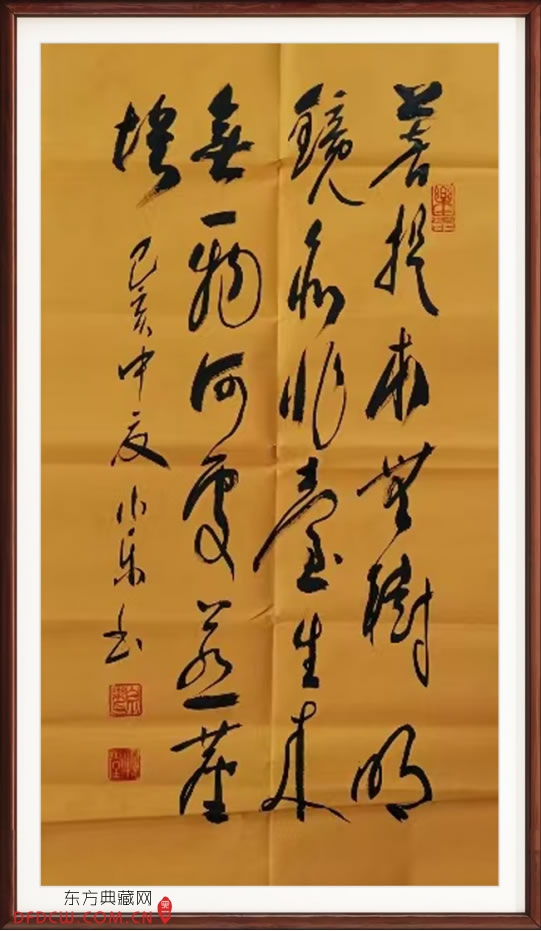 菩提本無樹明
鏡亦非臺生来
無一物何處惹塵
埃
己亥中夏小乐书
东方典藏网
DFDCW.COM.CN